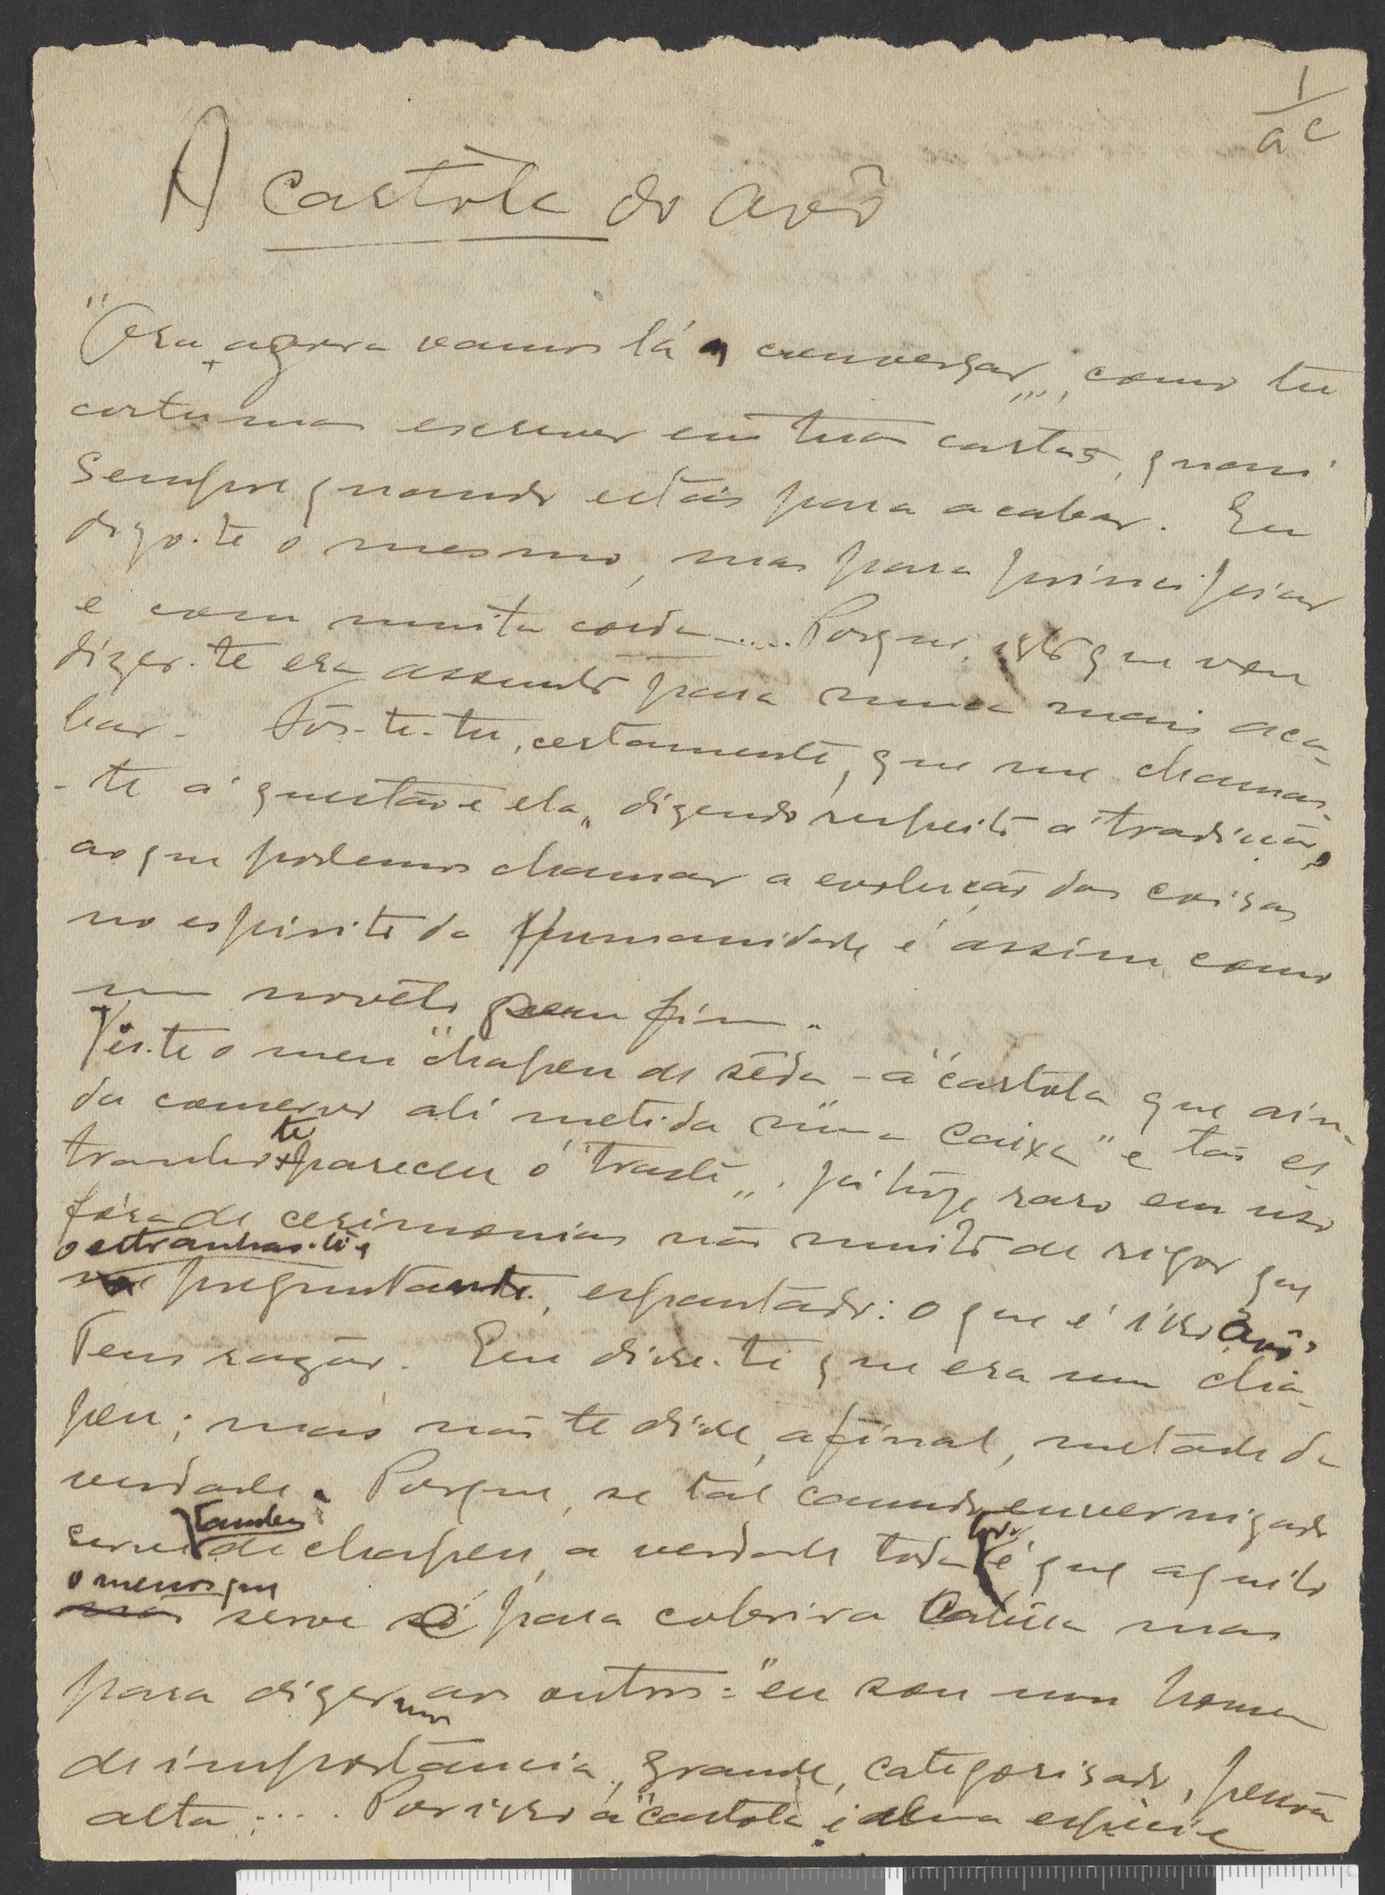 1
a c
A castóla do avô
"Ora, agora vamos lá a conversar", como tu
costumas escrever em tuas cartas, quasi
sempre quando estás para acabar. Eu
digo-te o mesmo, mas para principiar
e com muita corda..... Porque, isto que vou
dizer-te era assunto para nunca mais aca-
bar. Fôs-te tu, certamente, que me chamas-
-te á questão e ela, dizendo respeito a tradição,
ao que podemos chamar a evolução das coisas
no espirito da Humanidade é assim como
um novêlo sem fim.
Vis-te o meu "chapeu de sêda - a "cartola que ain-
da conservo ali metida nûma caixa" e tão es-
tranho te pareceu o "traste", já hoje raro em uso
fóra de cerimonias não muito de rigor que
o estranhas-te,
preguntante, espantado: o que é isso avô?
Tens razão. Eu disse-te que era um cha-
peu; mas não te disse, afinal, metade da
verdade. Porque, se tal canudo envernizado
serve tambem de chapeu, a verdade toda é que aquilo
o menos que
serve é para cobrir a cabeça mas
para dizermos aos outros: "eu sou um homem
de importancia, grande, categorisado, pessôa
alta.... Por isso a "cartola é uma espécie